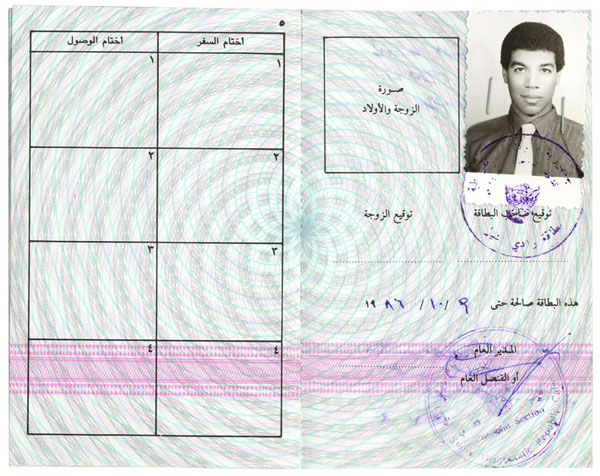 صورة
الزوجة والأولاد
توقيع صاحب البطاقة
توقيع الزوجة
هذه البطاقة صالحة حتى ٩ / ١٠ / ١٩٨٦
المدير العام
أو القنصل العام
Consular Section
٥
أختام السفر
أختام الوصول
١
١
٢
٢
٣
٣
٤
٤